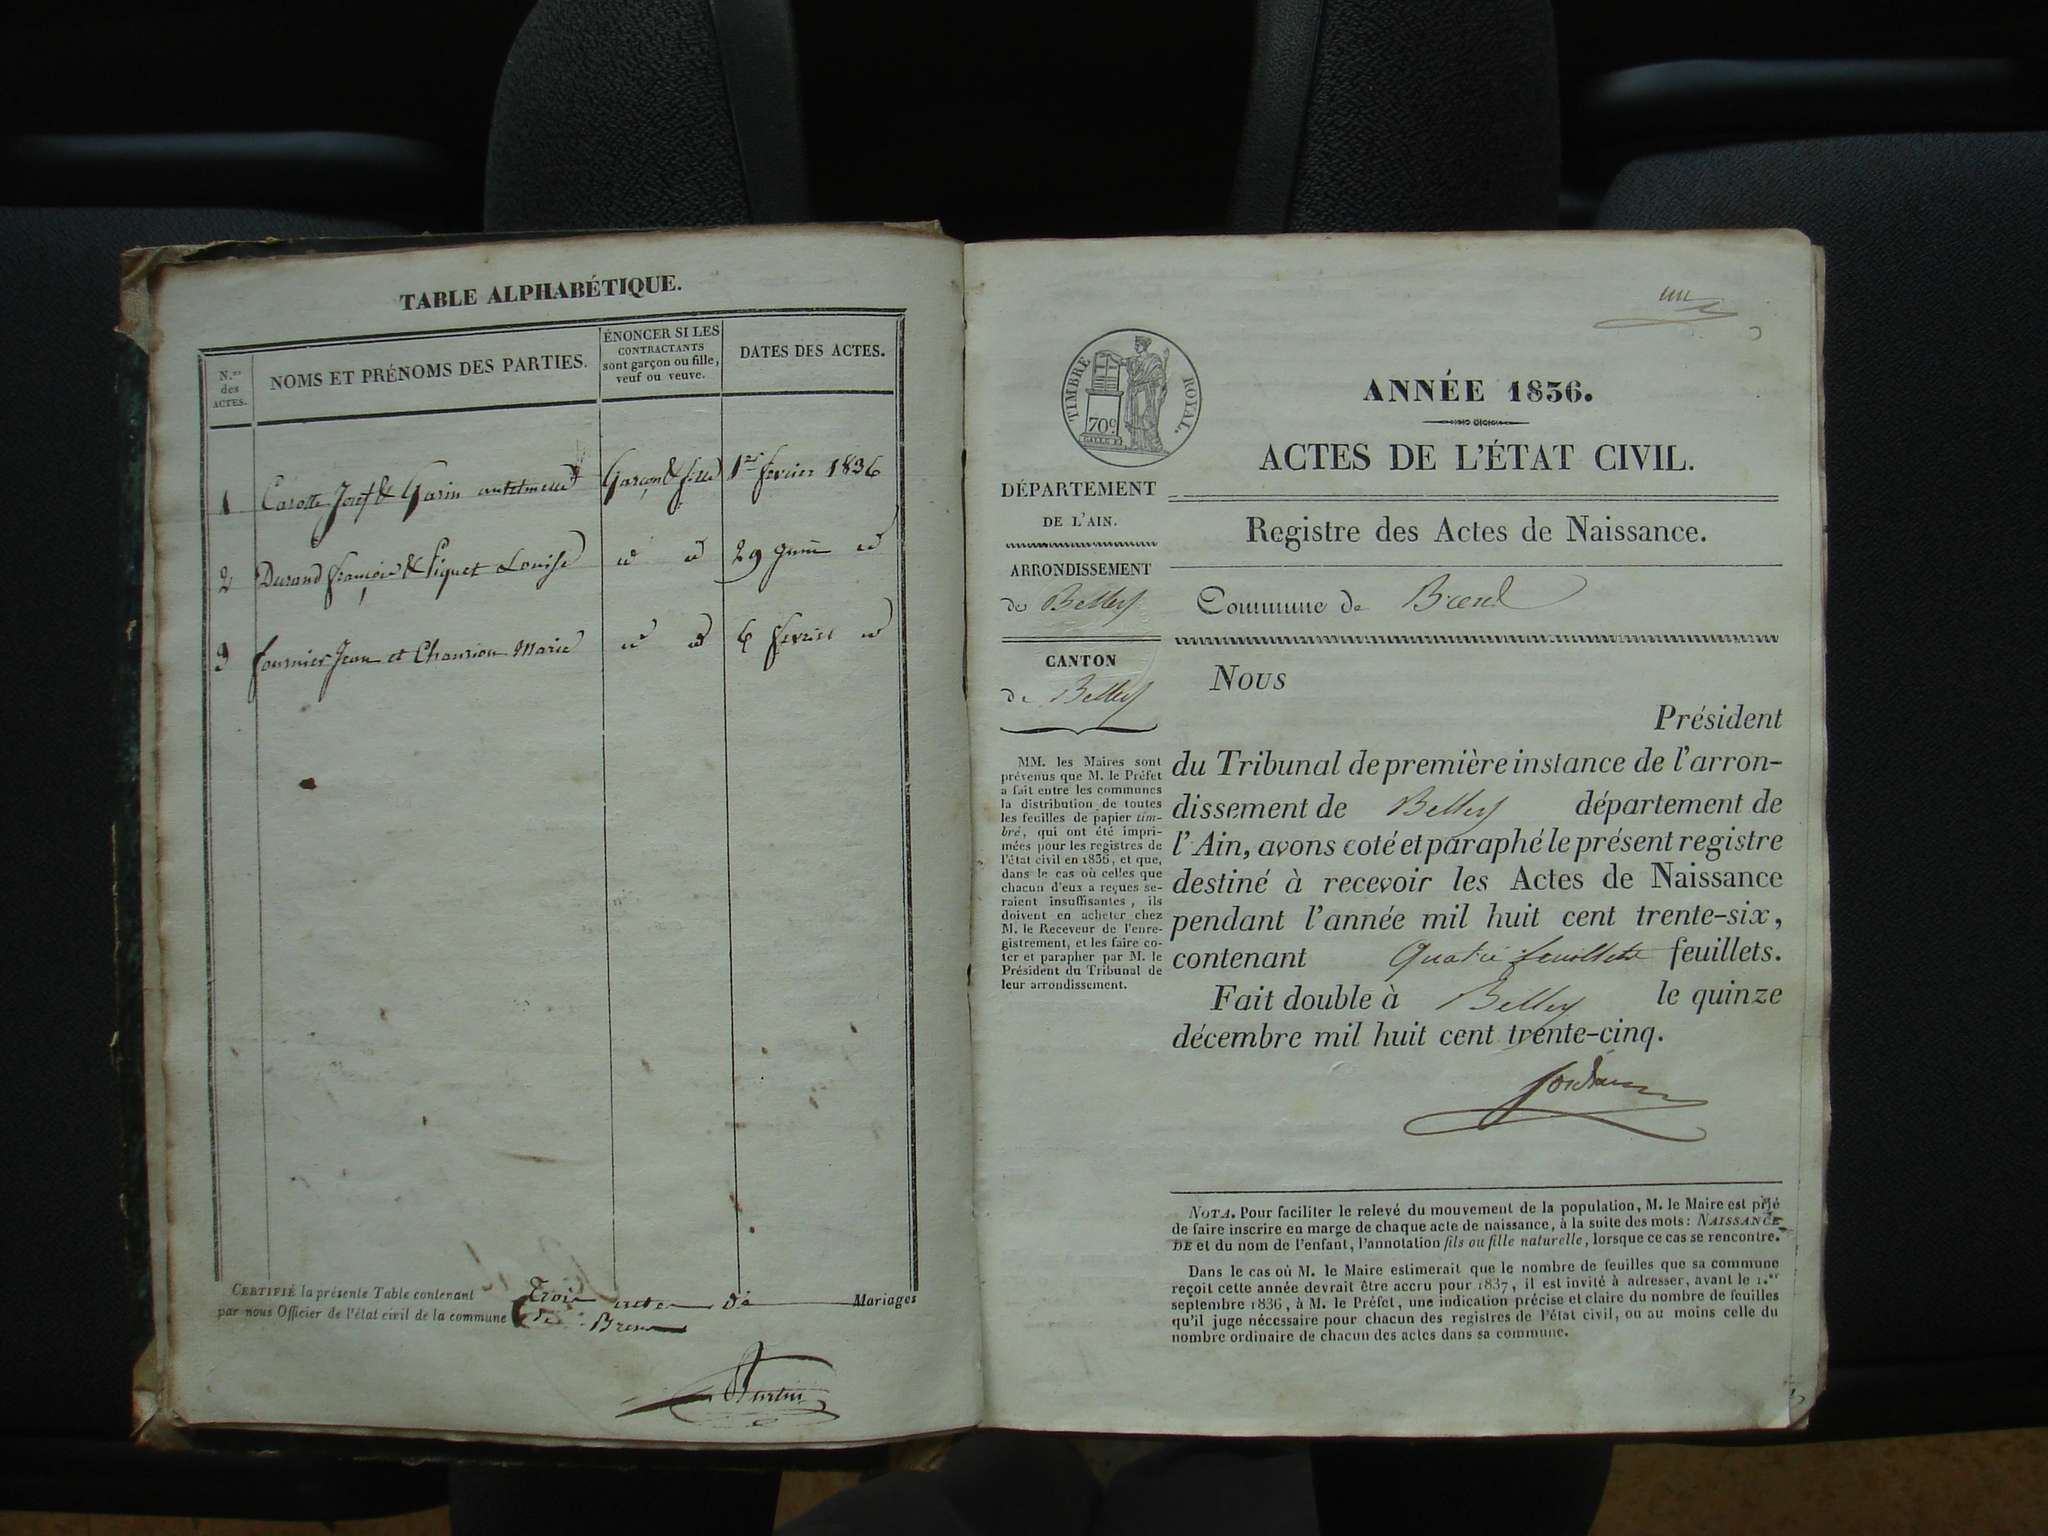 TABLE ALPHABÉTIQUE.
N.os des ACTES.
NOMS ET PRÉNOMS DES PARTIES.
ÉNONCER SI LES
CONTRACTANTS
sont garçon ou fille,
veuf ou veuve.
DATES DES ACTES.
1 Carotte Josef & Garin Garçon & fille 1er fevrier 1836
2 Durand françois & Piquet Louise id id 29 juin id
3 fournier Jean et Chaurion Marie id id 6 fevrier id
CERTIFIÉ la présente Table contenant Trois actes de Mariages
par nous Officier de l'état civil de la commune de Brens
un
TIMBRE ROYAL.
70c
ANNÉE 1836.
ACTES DE L'ÉTAT CIVIL.
DÉPARTEMENT
DE L'AIN.
Registre des Actes de Naissance.
ARRONDISSEMENT
de Belley
Commune de Brens
CANTON
de Belley
MM. les Maires sont
prévenus que M. le Préfet
a fait entre les communes
la distribution de toutes
les feuilles de papier tim-
bré, qui ont été impri-
mées pour les registres de
l'état civil en 1836, et que,
dans le cas où celles que
chacun d'eux a reçues se-
raient insuffisantes, ils
doivent en acheter chez
M. le Receveur de l'enre-
gistrement, et les faire co-
ter et parapher par M. le
Président du Tribunal de
leur arrondissement.
Nous
Président
du Tribunal de première instance de l'arron-
dissement de Belley département de
l'Ain, avons coté et paraphé le présent registre
destiné à recevoir les Actes de Naissance
pendant l'année mil huit cent trente-six,
contenant Quatre feuillets feuillets.
Fait double à Belley le quinze
décembre mil huit cent trente-cinq.
NOTA. Pour faciliter le relevé du mouvement de la population, M. le Maire est prié
de faire inscrire en marge de chaque acte de naissance, à la suite des mots: NAISSANCE
DE et du nom de l'enfant, l'annotation fils ou fille naturelle, lorsque ce cas se rencontre.
Dans le cas où M. le Maire estimerait que le nombre de feuilles que sa commune
reçoit cette année devrait être accru pour 1837, il est invité à adresser, avant le 1.er
septembre 1836, à M. le Préfet, une indication précise et claire du nombre de feuilles
qu'il juge nécessaire pour chacun des registres de l'état civil, ou au moins celle du
nombre ordinaire de chacun des actes dans sa commune.